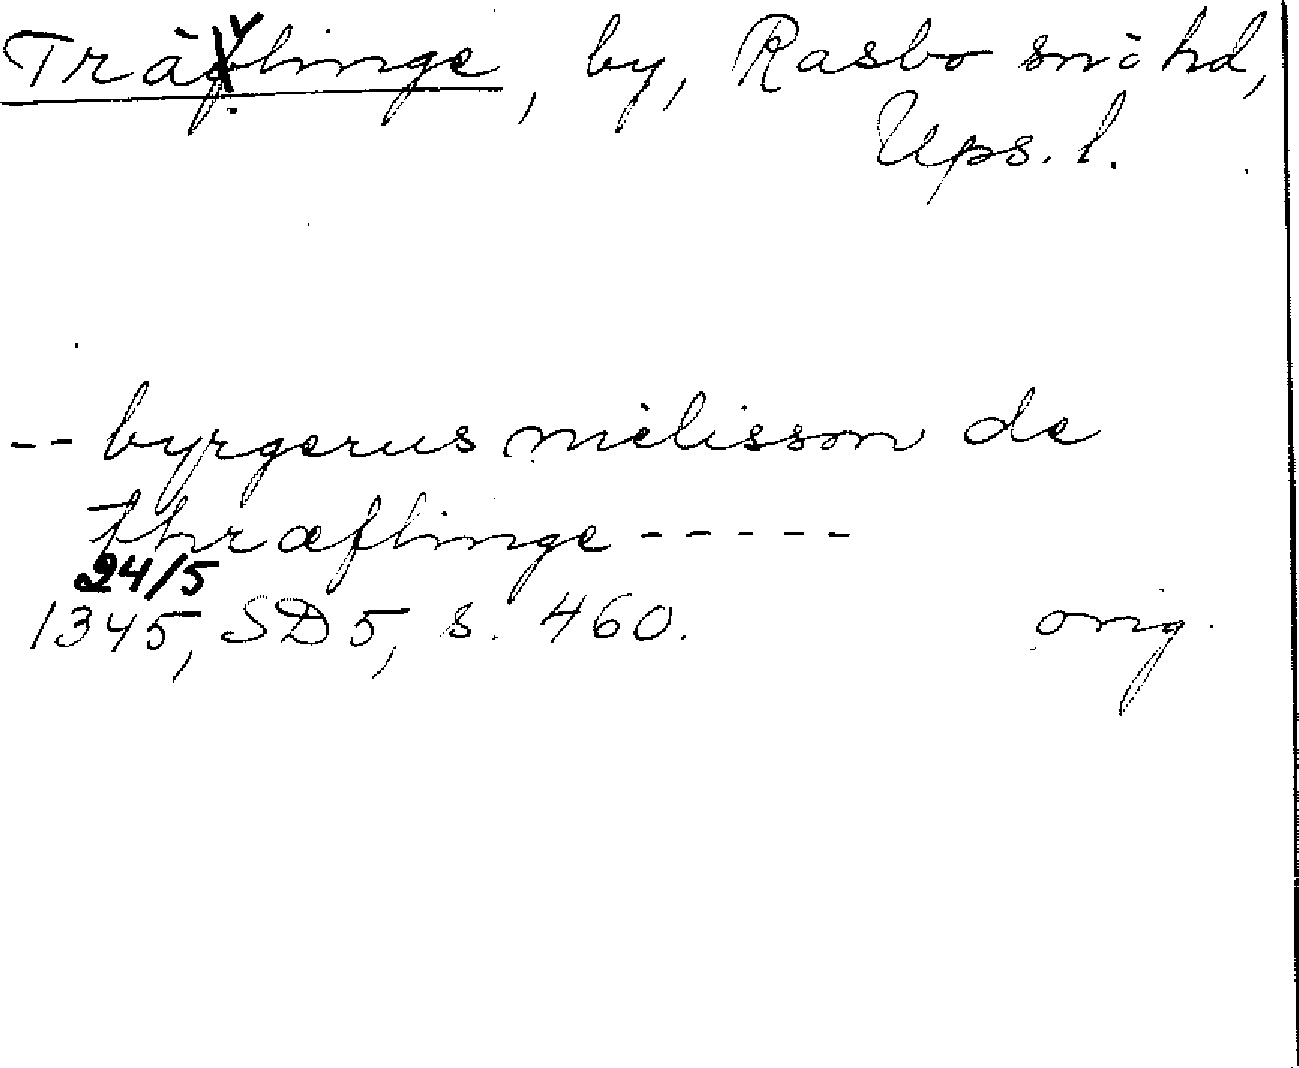 Trävlinge, by, Rasbo sn o hd,
Ups. l.
-- byrgerus mèlisson de
thræflinge -----
24/5
1345, SD 5, s. 460. orig.